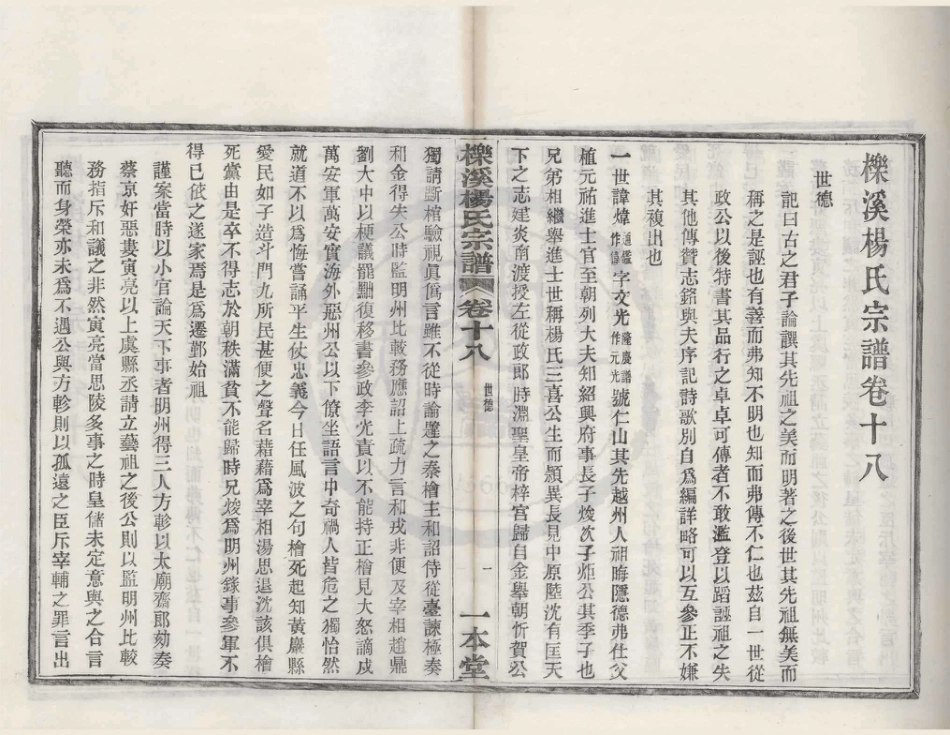 櫟溪楊氏宗譜卷十八
世德
記曰古之君子論譔其先祖之美而明著之後世其先祖無美而
稱之是誣也有善而弗知不明也知而弗傳不仁也茲自一世從
政公以後特書其品行之卓卓可傳者不敢濫登以蹈誣祖之失
其他傳贊志銘與夫序記詩歌別自為編詳略可以互參正不嫌
其複出也
一世諱煒字交光號仁山其先越州人祖晦隱德弗仕父
植元祐進士官至朝列大夫知紹興府事長子焌次子炬公其季子也
兄弟相繼舉進士世稱楊氏三喜公生而穎異長見中原陸沈有匡天
下之志建炎南渡授左從政郎時淵聖皇帝梓宮歸自金舉朝忻賀公
櫟溪楊氏宗譜 卷十八 世德 一 一本堂
獨請斷棺驗視眞僞言雖不從時論韙之秦檜主和詔侍從臺諫極奏
和金得失公時監明州比較務應詔上疏力言和戎非便及宰相趙鼎
劉大中以梗議罷黜復移書參政李光責以不能持正檜見大怒謫戍
萬安軍萬安實海外惡州公以下僚坐語言中奇禍人皆危之獨怡然
就道不以為悔嘗誦平生仗忠義今日任風波之句檜死起知黃巖縣
愛民如子造斗門九所民甚便之聲名藉藉為宰相湯思退沈該俱檜
死黨由是卒不得志於朝秩滿貧不能歸時兄焌為明州錄事參軍不
得已依之遂家焉是為遷鄞始祖
謹案當時以小官論天下事者明州得三人方軫以太廟齋郎劾奏
蔡京奸惡婁寅亮以上虞縣丞請立藝祖之後公則以監明州比較
務指斥和議之非然寅亮當思陵多事之時皇儲未定意與之合言
聽而身榮亦未為不遇公與方軫則以孤遠之臣斥宰輔之罪言出